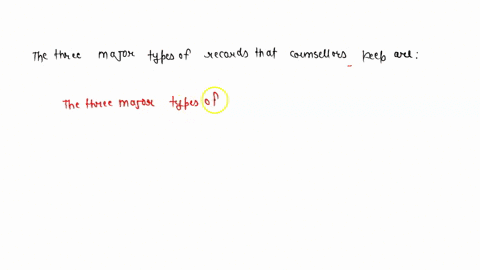 The three major types of records that counsellors keep are:
The three major types of